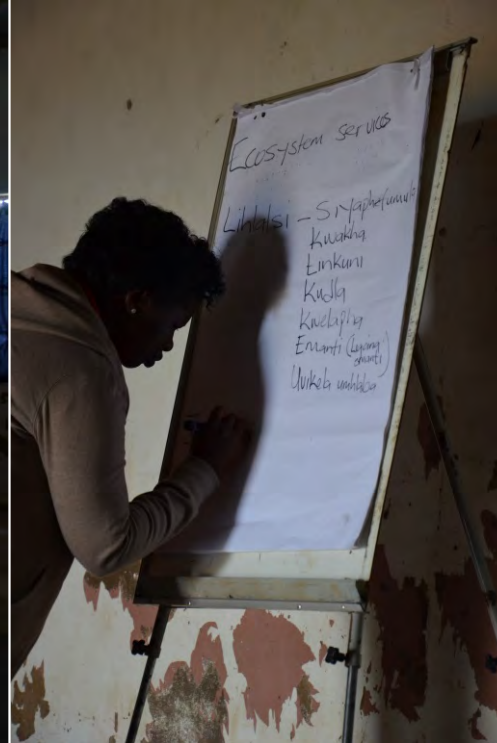 Ecosystem services
Lihlatsi - Siyaphefumula
Kwakha
Tinkuni
Kudla
Kwelapha
Emanti
Uvikela umhlaba